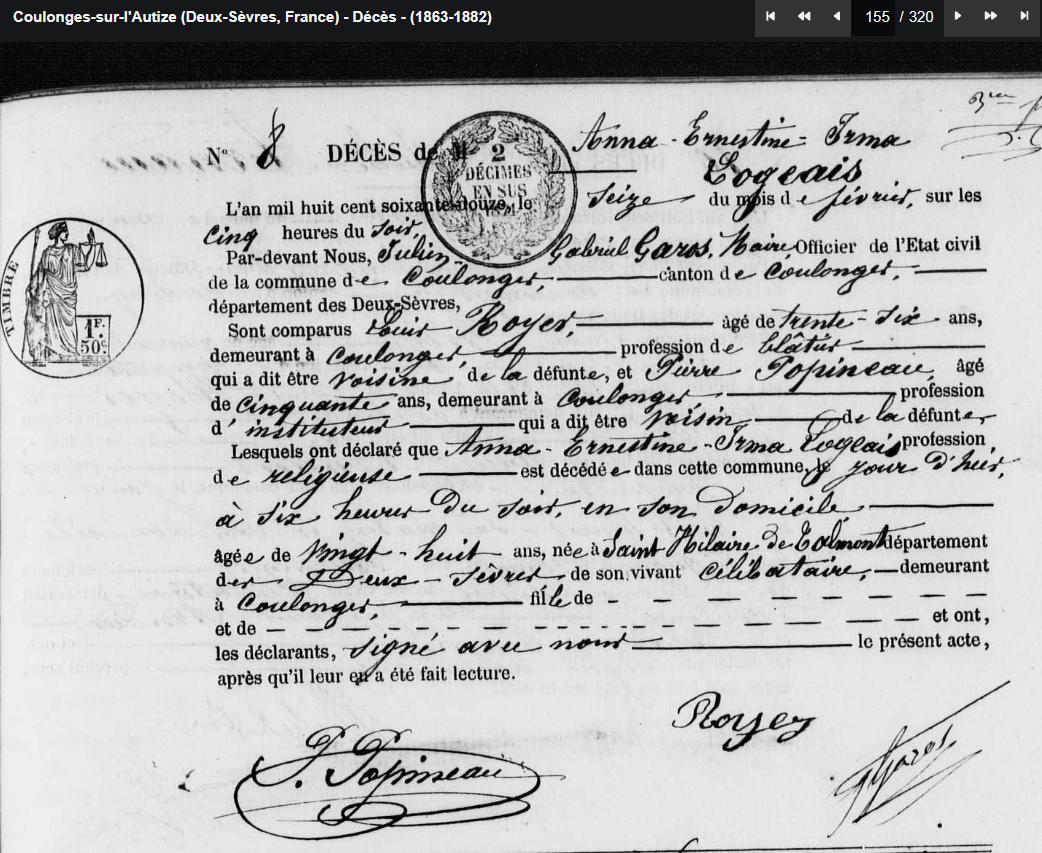 Coulonges-sur-l'Autize (Deux-Sèvres, France) - Décès - (1863-1882)
155 / 320
3me
Anna-Ernestine-Irma
N° 8 DÉCÈS de M
Logeais
2
DÉCIMES
EN SUS
TIMBRE
1 F.
50c
L'an mil huit cent soixante-douze, le seize du mois de février, sur les
cinq heures du soir,
Par-devant Nous, Julien-Gabriel Garos, Maire Officier de l'Etat civil
de la commune de Coulonges, canton de Coulonges
département des Deux-Sèvres,
Sont comparus Louis Royer, âgé de trente-six ans,
demeurant à Coulonges profession de blâtier
qui a dit être voisin de la défunte, et Pierre Popineau, âgé
de cinquante ans, demeurant à Coulonges profession
d'instituteur qui a dit être voisin de la défunte
Lesquels ont déclaré que Anna-Ernestine-Irma Logeais profession
de religieuse est décédée dans cette commune, le jour d'hier,
à six heures du soir, en son domicile
âgée de vingt-huit ans, née à Saint Hilaire de Talmont département
des Deux-Sèvres de son vivant célibataire, demeurant
à Coulonges, fille de
et de et ont,
les déclarants, signé avec nous le présent acte,
après qu'il leur en a été fait lecture.
Royer
P. Popineau
Garos